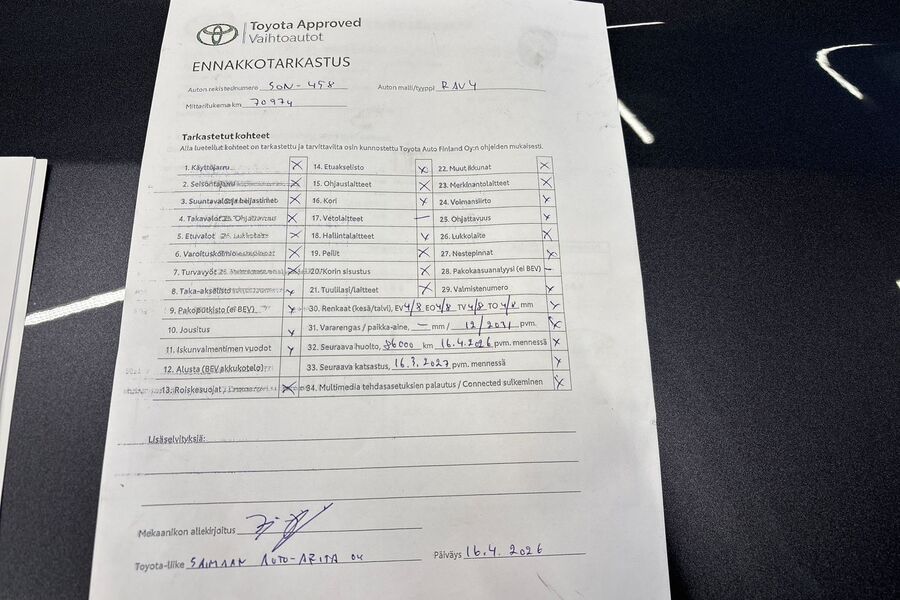 Toyota Approved
Vaihtoautot
ENNAKKOTARKASTUS
Auton rekisterinumero SON-458 Auton malli/tyyppi RAV4
Mittarilukema km 70974
Tarkastetut kohteet
Alla luetellut kohteet on tarkastettu ja tarvittavilta osin kunnostettu Toyota Auto Finland Oy:n ohjeiden mukaisesti.
1. Käyttöjarru X 14. Etuakselisto X 22. Muut ikkunat X
2. Seisontajarru X 15. Ohjauslaitteet X 23. Merkinantolaitteet X
3. Suuntavalot ja heijastimet X 16. Kori X 24. Voimansiirto X
4. Takavalot X 17. Vetolaitteet — 25. Ohjattavuus X
5. Etuvalot X 18. Hallintalaitteet X 26. Lukkolaite X
6. Varoituskolmio X 19. Peilit X 27. Nestepinnat X
7. Turvavyöt X 20. Korin sisustus X 28. Pakokaasuanalyysi (ei BEV) —
8. Taka-akselisto X 21. Tuulilasi/laitteet X 29. Valmistenumero X
9. Pakoputkisto (ei BEV) X 30. Renkaat (kesä/talvi), EV 4/8 EO 4/8 TV 4/8 TO 4/8 mm X
10. Jousitus X 31. Vararengas / paikka-aine, — mm / 12/2031 pvm. X
11. Iskunvaimentimen vuodot X 32. Seuraava huolto, 86000 km 16.4.2026 pvm. mennessä X
12. Alusta (BEV akkukotelo) 33. Seuraava katsastus, 16.3.2027 pvm. mennessä X
13. Roiskesuojat X 34. Multimedia tehdasasetuksien palautus / Connected sulkeminen X
Lisäselvityksiä:
Mekaanikon allekirjoitus
Toyota-liike SAIMAAN AUTO-ARITA OY Päiväys 16.4.2026